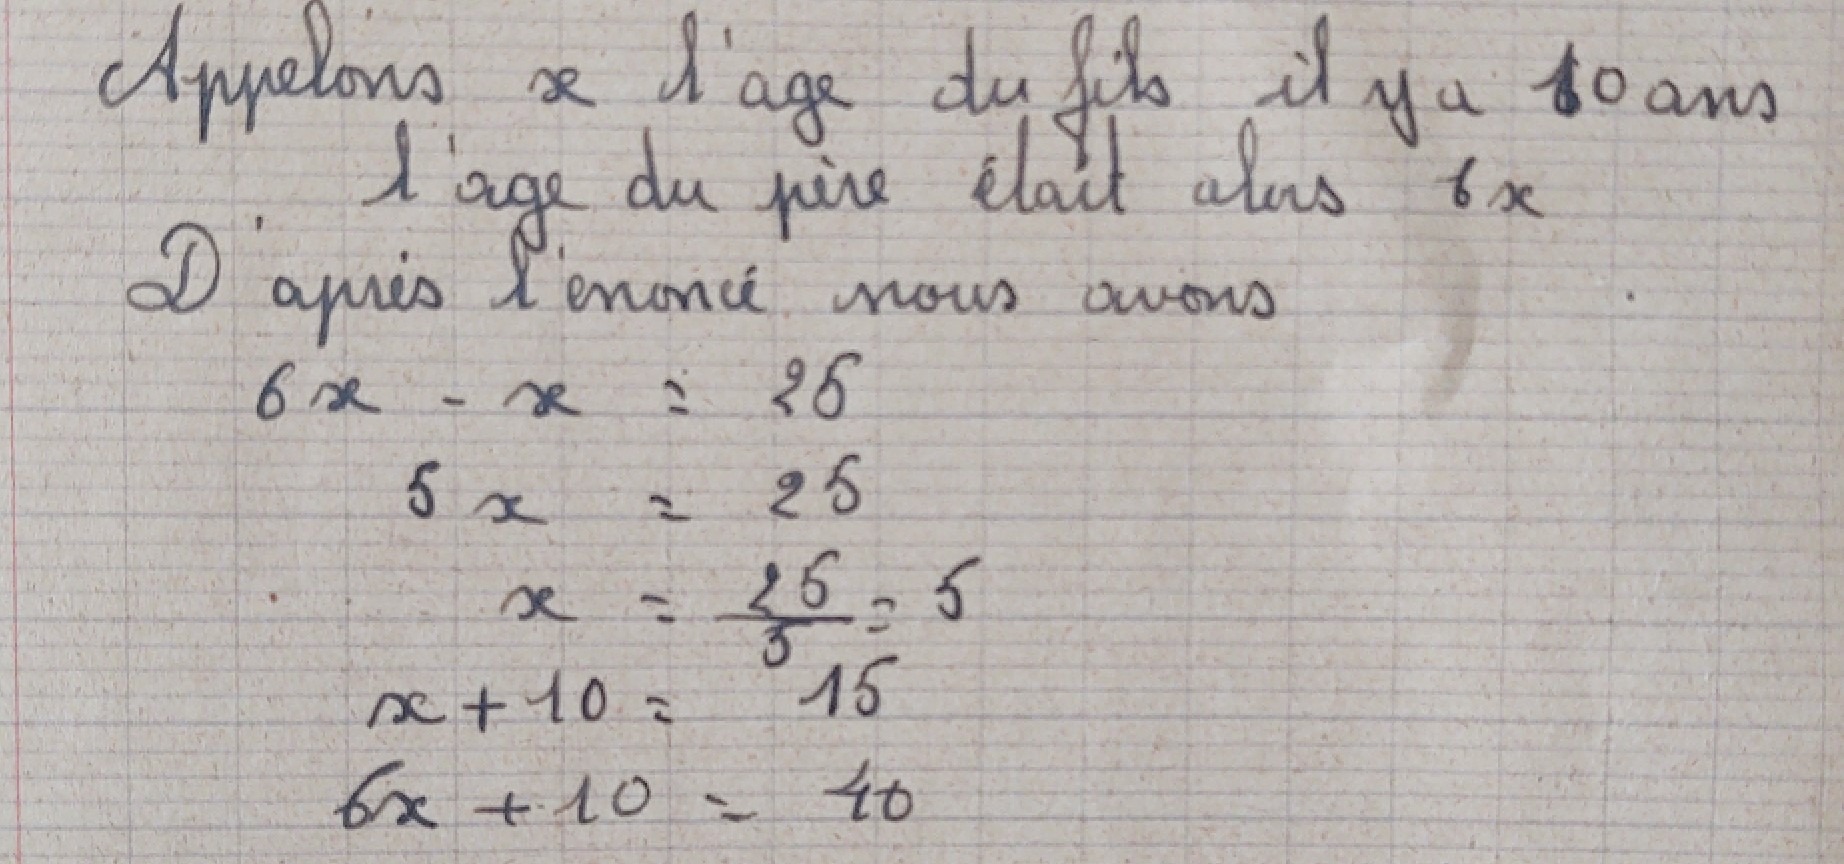 Appelons x l'age du fils il y a 10 ans
l'age du père était alors 6x
D'après l'enoncé nous avons
6x - x = 25
5x = 25
x = 25/5 = 5
x + 10 = 15
6x + 10 = 40